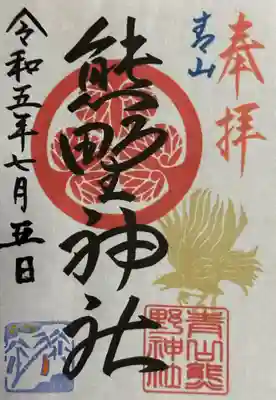 奉拝
青山
熊野神社
令和五年七月五日
青山熊
野神社